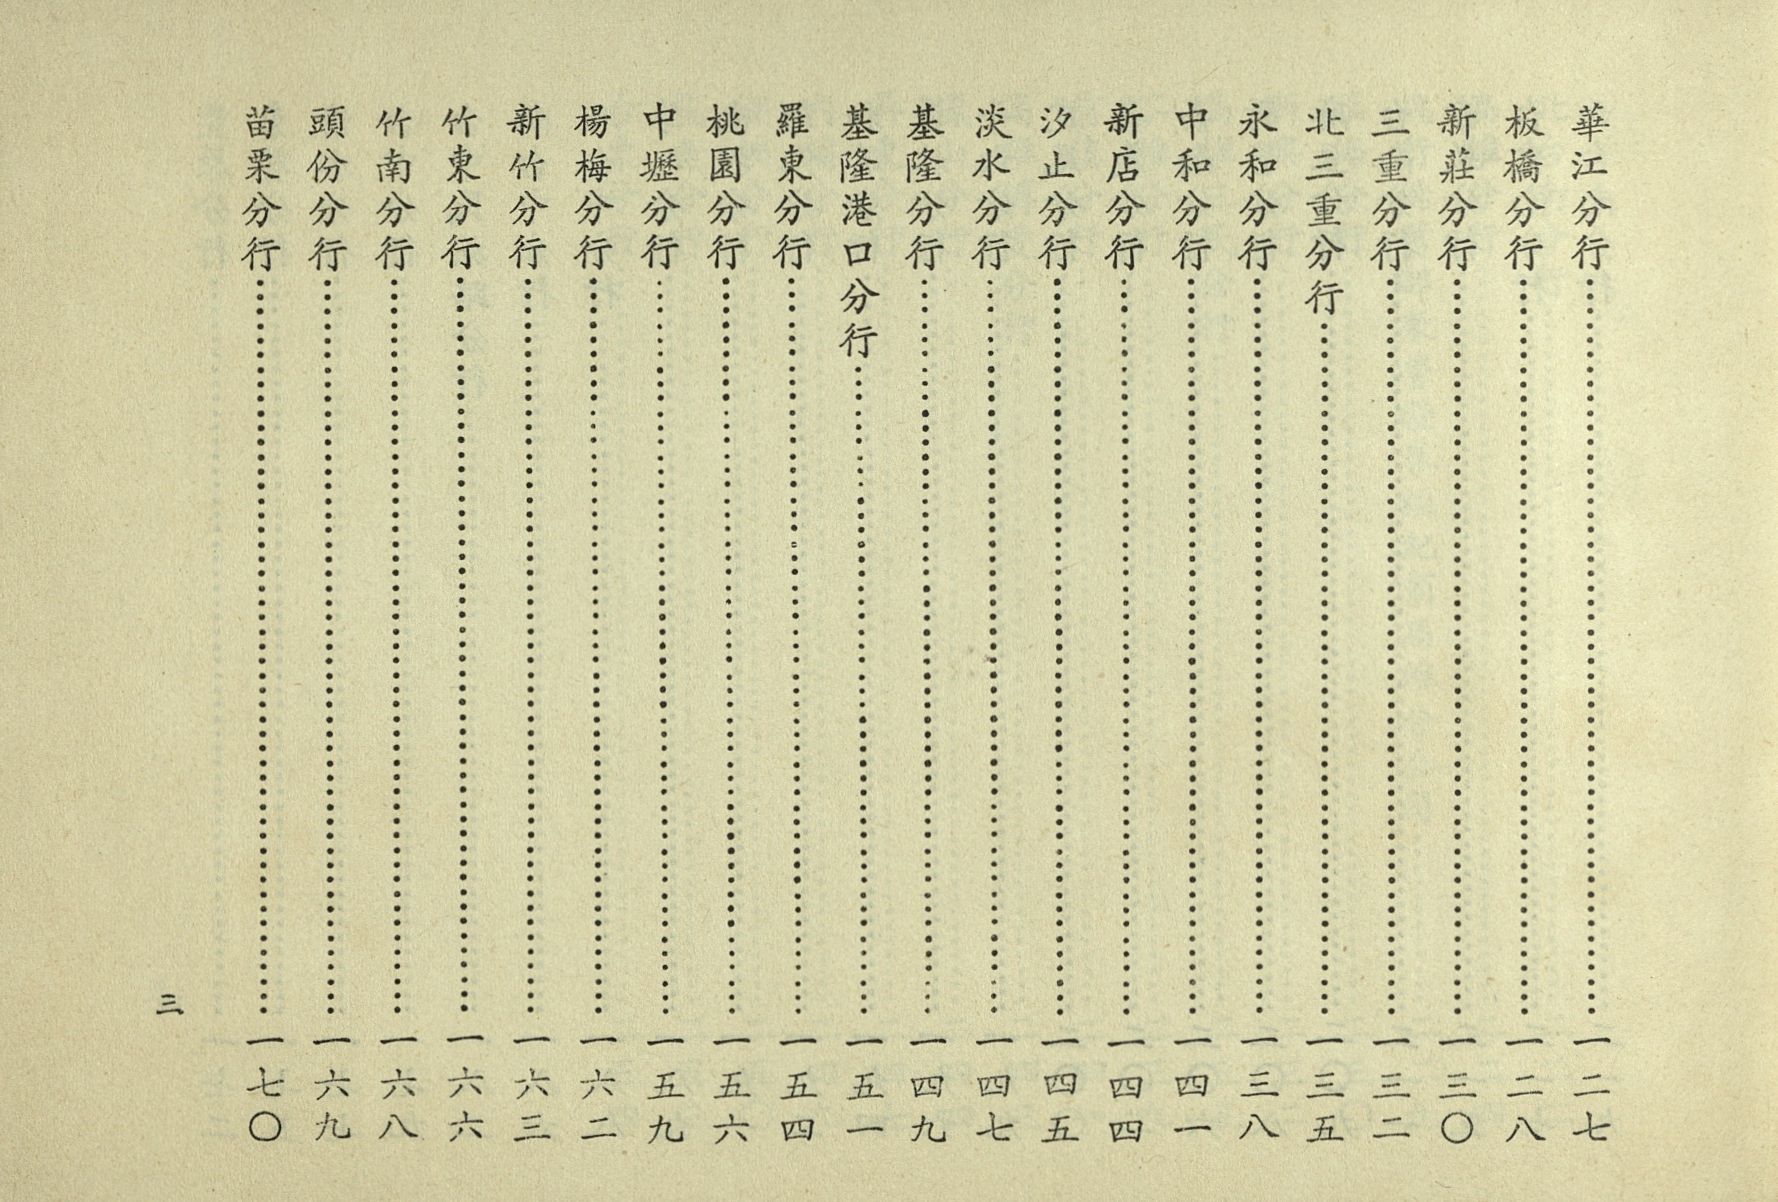 華江分行……一二七
板橋分行……一二八
新莊分行……一三〇
三重分行……一三二
北三重分行……一三五
永和分行……一三八
中和分行……一四一
新店分行……一四四
汐止分行……一四五
淡水分行……一四七
基隆分行……一四九
基隆港口分行……一五一
羅東分行……一五四
桃園分行……一五六
中壢分行……一五九
楊梅分行……一六二
新竹分行……一六三
竹東分行……一六六
竹南分行……一六八
頭份分行……一六九
苗栗分行……一七〇
三